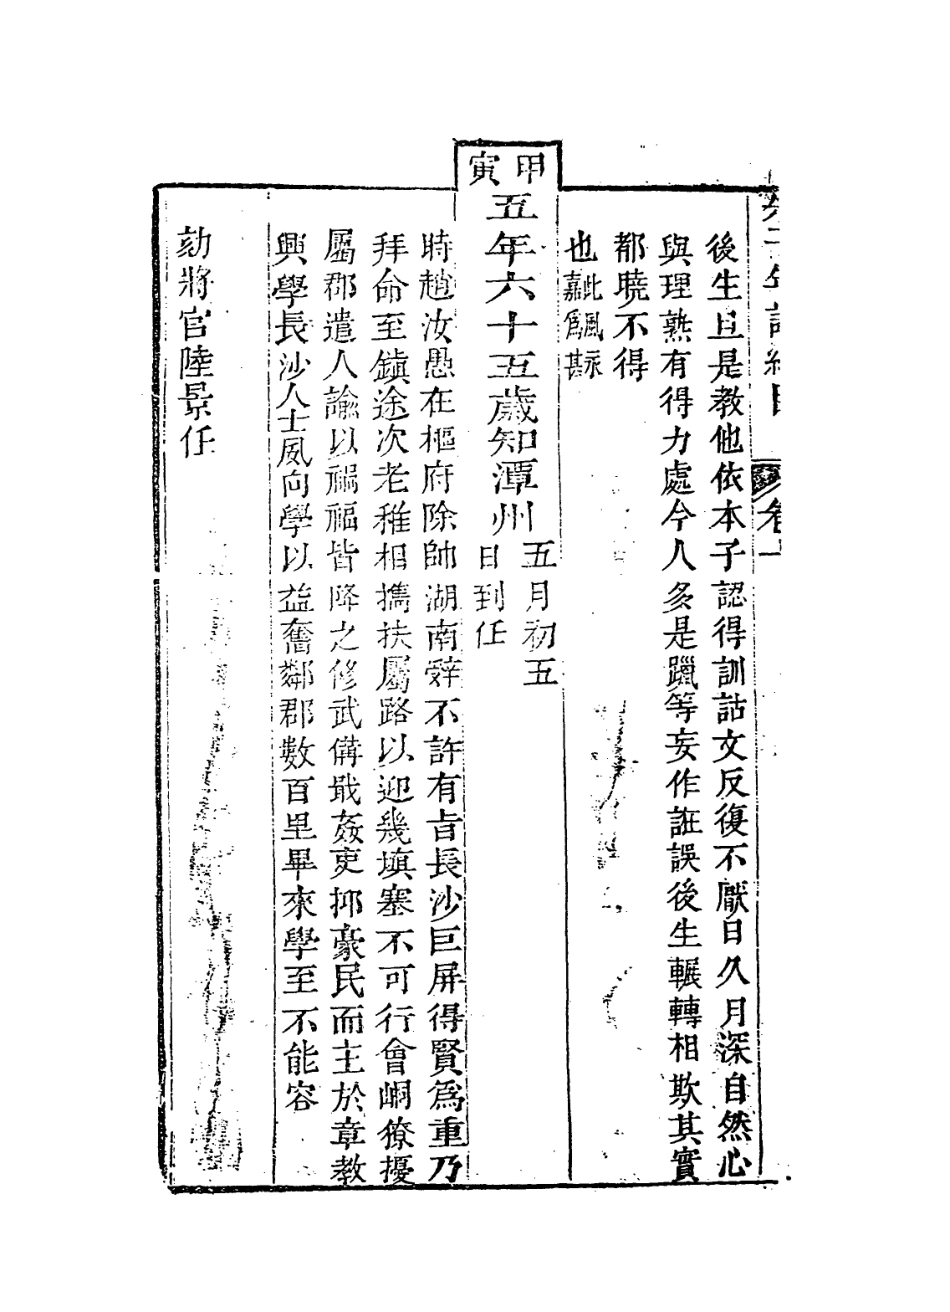 後生且是教他依本子認得訓詁文反復不厭日久月深自然心
與理熟有得力處今人多是躐等妄作誑誤後生輾轉相欺其實
都曉不得
也
甲寅
五年六十五歲知潭州
五月初五
日到任
時趙汝愚在樞府除帥湖南辭不許有旨長沙巨屏得賢爲重乃
拜命至鎮途次老稚相攜扶屬路以迎幾填塞不可行會峒獠擾
屬郡遣人諭以禍福皆降之修武備戢姦吏抑豪民而主於章教
興學長沙人士夙向學以益奮鄰郡數百里畢來學至不能容
劾將官陸景任